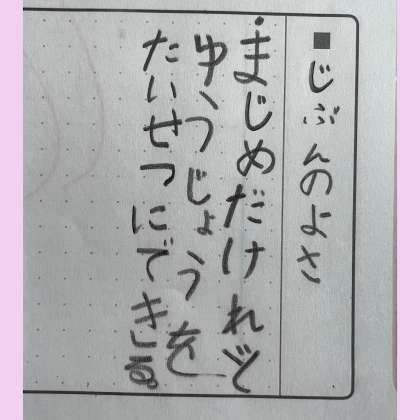 ■じぶんのよさ
・まじめだけれど
ゆうじょうを
たいせつにできる